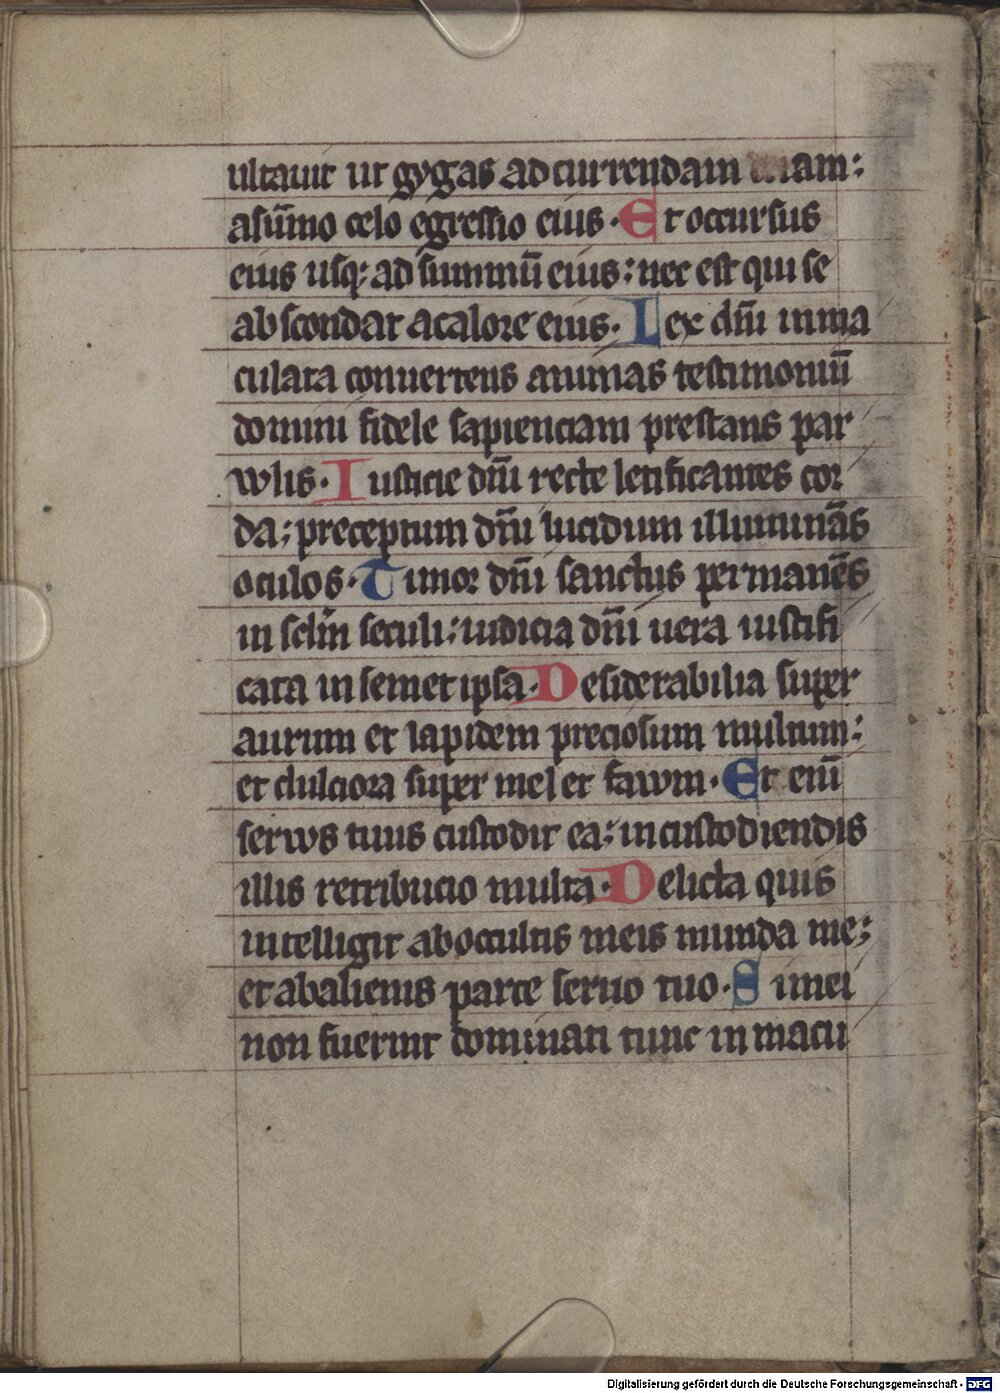 ultauit ut gygas ad currendam uiam:
a sūmo celo egressio eius. Et occursus
eius usq; ad summū eius: nec est qui se
abscondat a calore eius. Lex dn̄i inma
culata conuertens animas testimoniū
domini fidele sapienciam prestans par
wlis. Iusticie dn̄i recte letificantes cor
da; preceptum dn̄i lucidum illuminās
oculos. Timor dn̄i sanctus permanēs
in sclm̄ seculi; iudicia dn̄i uera iustifi
cata in semet ipsa. Desiderabilia super
aurum et lapidem preciosum multum:
et dulciora super mel et fawm. Et eni̅
serws tuus custodit ea; in custodiendis
illis retribucio multa. Delicta quis
intelligit ab occultis meis munda me;
et ab alienis parce seruo tuo. Si mei
non fuerint dominati tunc inmacu
Digitalisierung gefördert durch die Deutsche Forschungsgemeinschaft - DFG